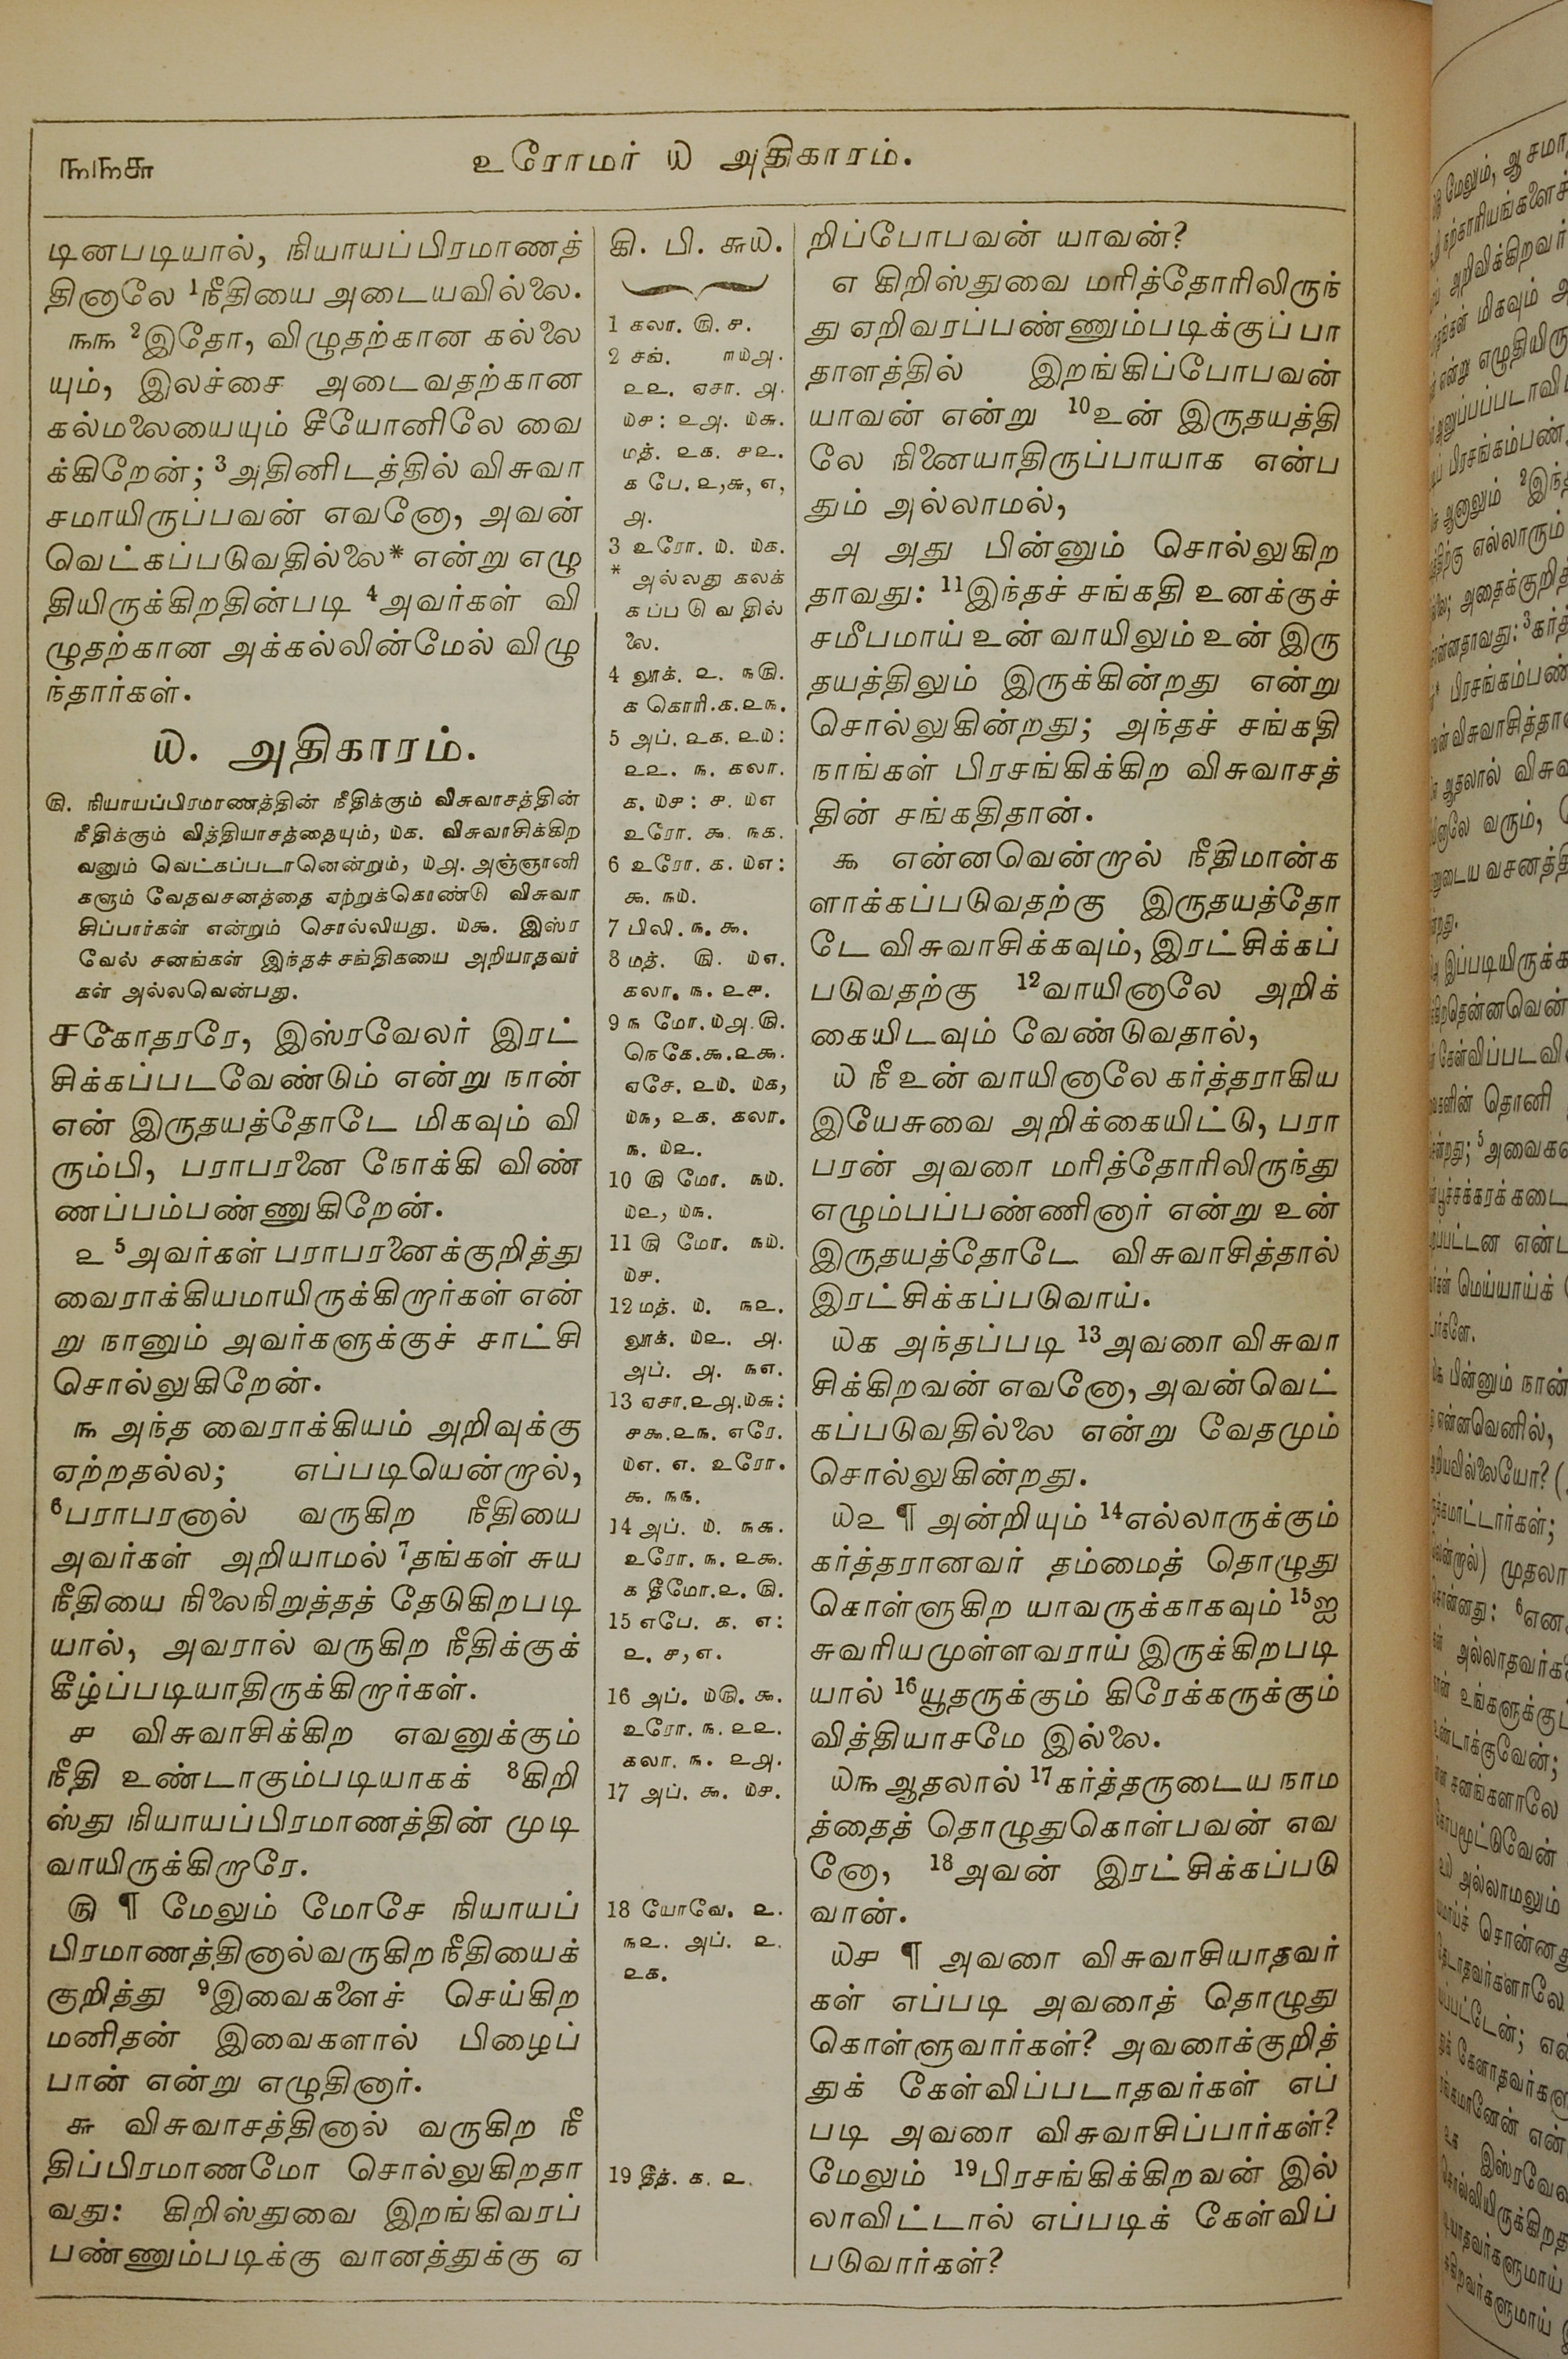 ௩௩௬
உரோமர் ௰ அதிகாரம்.
டினபடியால், நியாயப்பிரமாணத்
தினாலே 1நீதியை அடையவில்லை.
௩௩ 2இதோ, விழுதற்கான கல்லை
யும், இலச்சை அடைவதற்கான
கல்மலையையும் சீயோனிலே வை
க்கிறேன்; 3அதினிடத்தில் விசுவா
சமாயிருப்பவன் எவனோ, அவன்
வெட்கப்படுவதில்லை* என்று எழு
தியிருக்கிறதின்படி 4அவர்கள் வி
ழுதற்கான அக்கல்லின்மேல் விழு
ந்தார்கள்.
௰. அதிகாரம்.
௫. நியாயப்பிரமாணத்தின் நீதிக்கும் விசுவாசத்தின்
நீதிக்கும் வித்தியாசத்தையும், ௰௧. விசுவாசிக்கிற
வனும் வெட்கப்படானென்றும், ௰௮. அஞ்ஞானி
களும் வேதவசனத்தை ஏற்றுக்கொண்டு விசுவா
சிப்பார்கள் என்றும் சொல்லியது. ௰௯. இஸ்ர
வேல் சனங்கள் இந்தச் சங்திகயை அறியாதவர்
கள் அல்லவென்பது.
சகோதரரே, இஸ்ரவேலர் இரட்
சிக்கப்படவேண்டும் என்று நான்
என் இருதயத்தோடே மிகவும் வி
ரும்பி, பராபரனை நோக்கி விண்
ணப்பம்பண்ணுகிறேன்.
௨ 5அவர்கள் பராபரனைக்குறித்து
வைராக்கியமாயிருக்கிறார்கள் என்
று நானும் அவர்களுக்குச் சாட்சி
சொல்லுகிறேன்.
௩ அந்த வைராக்கியம் அறிவுக்கு
ஏற்றதல்ல; எப்படியென்றால்,
6பராபரனால் வருகிற நீதியை
அவர்கள் அறியாமல் 7தங்கள் சுய
நீதியை நிலைநிறுத்தத் தேடுகிறபடி
யால், அவரால் வருகிற நீதிக்குக்
கீழ்ப்படியாதிருக்கிறார்கள்.
௪ விசுவாசிக்கிற எவனுக்கும்
நீதி உண்டாகும்படியாகக் 8கிறி
ஸ்து நியாயப்பிரமாணத்தின் முடி
வாயிருக்கிறாரே.
௫ ¶ மேலும் மோசே நியாயப்
பிரமாணத்தினால்வருகிற நீதியைக்
குறித்து 9இவைகளைச் செய்கிற
மனிதன் இவைகளால் பிழைப்
பான் என்று எழுதினார்.
௬ விசுவாசத்தினால் வருகிற நீ
திப்பிரமாணமோ சொல்லுகிறதா
வது: கிறிஸ்துவை இறங்கிவரப்
பண்ணும்படிக்கு வானத்துக்கு ஏ
கி. பி. ௬௰.
1 கலா. ௫. ௪.
2 சங். ௱௰௮.
௨௨. ஏசா. ௮.
௰௪: ௨௮. ௰௬.
மத். ௨௧. ௪௨.
௧ பே. ௨,௬, ௭,
௮.
3 உரோ. ௰. ௰௧.
* அல்லது கலக்
கப்படுவதில்
லை.
4 லூக். ௨. ௩௫.
௧ கொரி.௧.௨௩.
5 அப். ௨௧. ௨௰:
௨௨. ௩. கலா.
௧. ௰௪: ௪. ௰௭
உரோ. ௯. ௩௧.
6 உரோ. ௧. ௰௭:
௯. ௩௰.
7 பிலி. ௩. ௯.
8 மத். ௫. ௰௭.
கலா. ௩. ௨௪.
9 ௩ மோ.௰௮.௫.
நெகே.௯.௨௯.
ஏசே. ௨௰. ௰௧,
௰௩, ௨௧. கலா.
௩. ௰௨.
10 ௫ மோ. ௩௰.
௰௨, ௰௩.
11 ௫ மோ. ௩௰.
௰௪.
12 மத். ௰. ௩௨.
லூக். ௰௨. ௮.
அப். ௮. ௩௭.
13 ஏசா.௨௮.௰௬:
௪௯.௨௩. எரே.
௰௭. ௭. உரோ.
௯. ௩௩.
14 அப். ௰. ௩௬.
உரோ. ௩. ௨௯.
௧ தீமோ.௨. ௫.
15 எபே. ௧. ௭:
௨. ௪,௭.
16 அப். ௰௫. ௯.
உரோ. ௩. ௨௨.
கலா. ௩. ௨௮.
17 அப். ௯. ௰௪.
18 யோவே. ௨.
௩௨. அப். ௨.
௨௧.
19 தீத். ௧. ௨.
றிப்போபவன் யாவன்?
௭ கிறிஸ்துவை மரித்தோரிலிருந்
து ஏறிவரப்பண்ணும்படிக்குப் பா
தாளத்தில் இறங்கிப்போபவன்
யாவன் என்று 10உன் இருதயத்தி
லே நினையாதிருப்பாயாக என்ப
தும் அல்லாமல்,
௮ அது பின்னும் சொல்லுகிற
தாவது: 11இந்தச் சங்கதி உனக்குச்
சமீபமாய் உன் வாயிலும் உன் இரு
தயத்திலும் இருக்கின்றது என்று
சொல்லுகின்றது; அந்தச் சங்கதி
நாங்கள் பிரசங்கிக்கிற விசுவாசத்
தின் சங்கதிதான்.
௯ என்னவென்றால் நீதிமான்க
ளாக்கப்படுவதற்கு இருதயத்தோ
டே விசுவாசிக்கவும், இரட்சிக்கப்
படுவதற்கு 12வாயினாலே அறிக்
கையிடவும் வேண்டுவதால்,
௰ நீ உன் வாயினாலே கர்த்தராகிய
இயேசுவை அறிக்கையிட்டு, பரா
பரன் அவரை மரித்தோரிலிருந்து
எழும்பப்பண்ணினார் என்று உன்
இருதயத்தோடே விசுவாசித்தால்
இரட்சிக்கப்படுவாய்.
௰௧ அந்தப்படி 13அவரை விசுவா
சிக்கிறவன் எவனோ, அவன்வெட்
கப்படுவதில்லை என்று வேதமும்
சொல்லுகின்றது.
௰௨ ¶ அன்றியும் 14எல்லாருக்கும்
கர்த்தரானவர் தம்மைத் தொழுது
கொள்ளுகிற யாவருக்காகவும் 15ஐ
சுவரியமுள்ளவராய் இருக்கிறபடி
யால் 16யூதருக்கும் கிரேக்கருக்கும்
வித்தியாசமே இல்லை.
௰௩ ஆதலால் 17கர்த்தருடைய நாம
த்தைத் தொழுதுகொள்பவன் எவ
னோ, 18அவன் இரட்சிக்கப்படு
வான்.
௰௪ ¶ அவரை விசுவாசியாதவர்
கள் எப்படி அவரைத் தொழுது
கொள்ளுவார்கள்? அவரைக்குறித்
துக் கேள்விப்படாதவர்கள் எப்
படி அவரை விசுவாசிப்பார்கள்?
மேலும் 19பிரசங்கிக்கிறவன் இல்
லாவிட்டால் எப்படிக் கேள்விப்
படுவார்கள்?